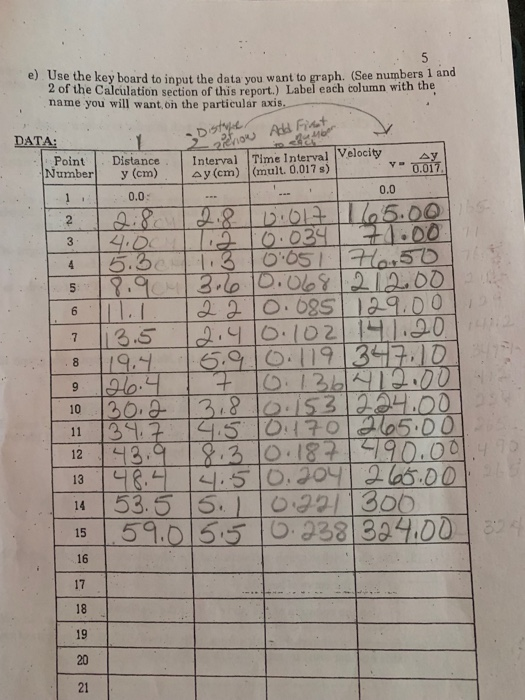 5
e) Use the key board to input the data you want to graph. (See numbers 1 and
2 of the Calculation section of this report.) Label each column with the
name you will want on the particular axis.
Add First
DATA:
Point Number Distance y (cm) Interval Δy (cm) Time Interval (mult. 0.017 s) Velocity v = Δy / 0.017
1 0.0 --- --- 0.0
2 2.8 2.8 0.017 165.00
3 4.0 1.2 0.034 71.00
4 5.3 1.3 0.051 76.50
5 8.9 3.6 0.068 212.00
6 11.1 2.2 0.085 129.00
7 13.5 2.4 0.102 141.20
8 19.4 5.9 0.119 347.10
9 26.4 7 0.136 412.00
10 30.2 3.8 0.153 224.00
11 34.7 4.5 0.170 265.00
12 43.9 8.3 0.187 490.00
13 48.4 4.5 0.204 265.00
14 53.5 5.1 0.221 300
15 59.0 5.5 0.238 324.00
16
17
18
19
20
21